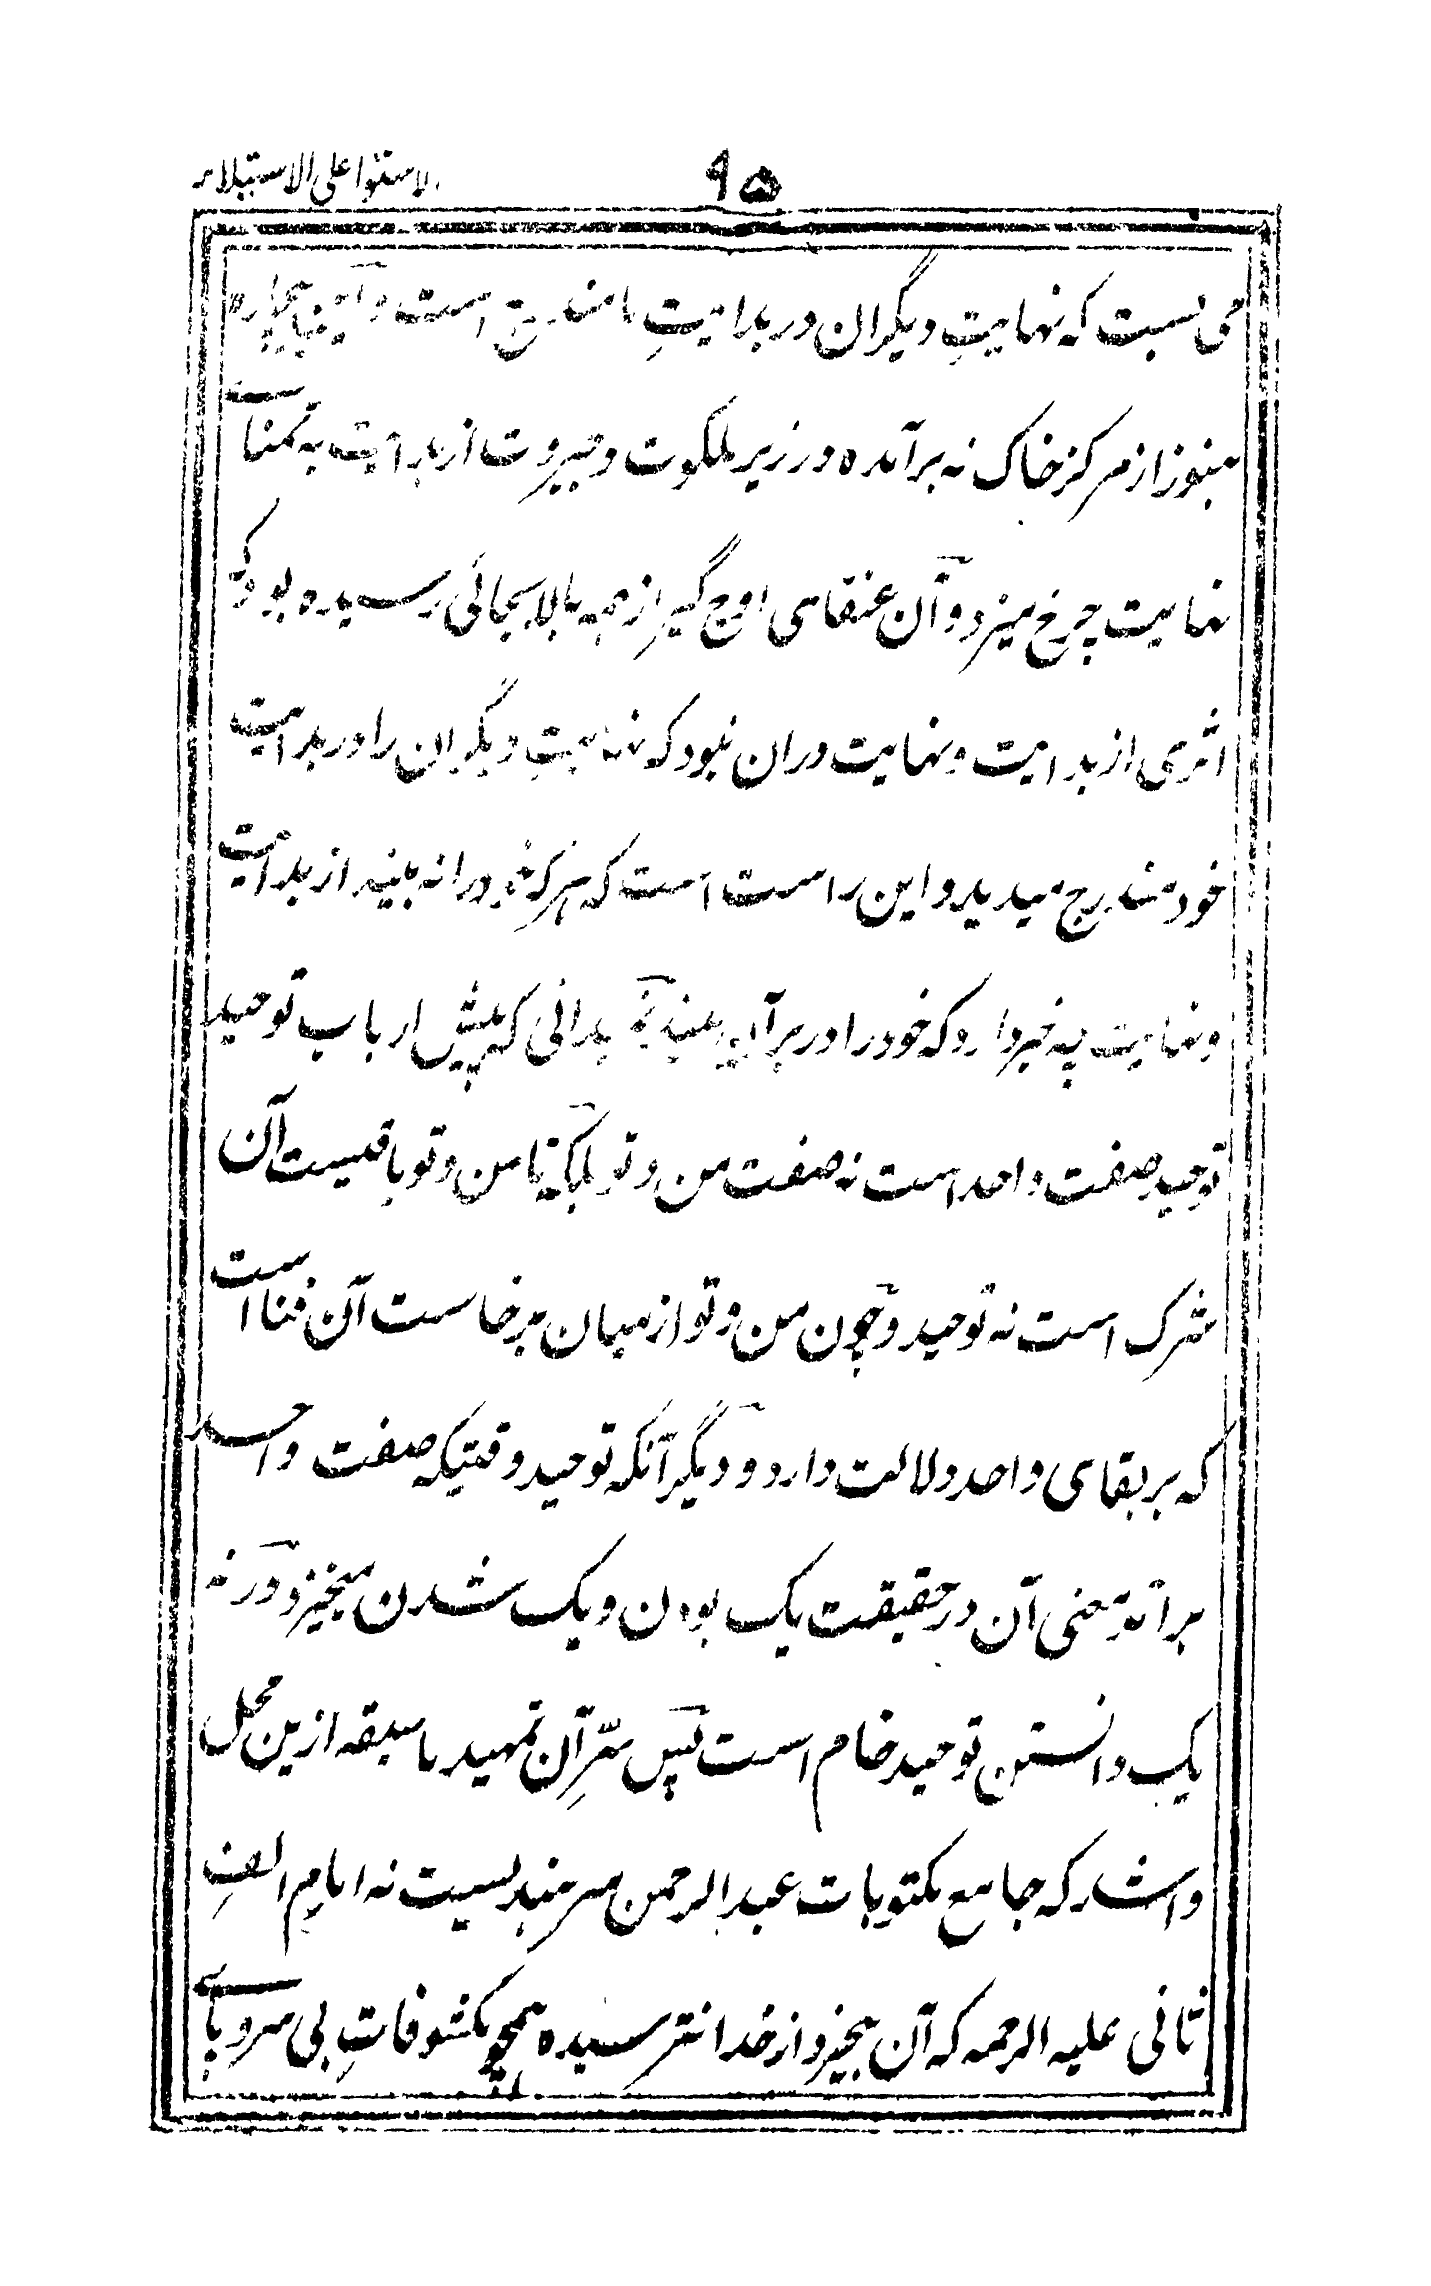 ۹۵
الاستوا علی الاستیلاء
می بست که نهایتِ دیگران در بدایتِ ما مندرج است و این بیچاره
هنوز از مرکز خاک نه برآمده در زیر ملکوت و جبروت از بدایت به تمنای
نهایت چرخ میزد و آن عنقای اوج گیر از همه بالا بجائی رسیده بود که
اثری از بدایت و نهایت دران نبود که نهایتِ دیگران را در بدایت
خود مندرج میدید و این راست است که هر که خود را نه بیند از بدایت
و نهایت چه خبر دارد که خود را در برابر بیند بدانی که پیش ارباب توحید
توحید صفت واحد است نه صفت من و تو بلکه تا من و تو باقیست آن
شرک است نه توحید و چون من و تو از میان برخاست آن فنا است
که بر بقای واحد دلالت دارد و دیگر آنکه توحید وقتیکه صفت واحد
بر معنی آن در حقیقت یک بودن و یک شدن میخیزد ورنه
یک دانستن توحید خام است پس سرِّ آن تمهید ما سبقه ازین محل
واشد که جامع مکتوبات عبدالرحمن سرهندیست نه امامِ الفِ
ثانی علیه الرحمه که آن بیخبر و از خدا نترسیده همچو مکشوفاتِ بی سر و پا